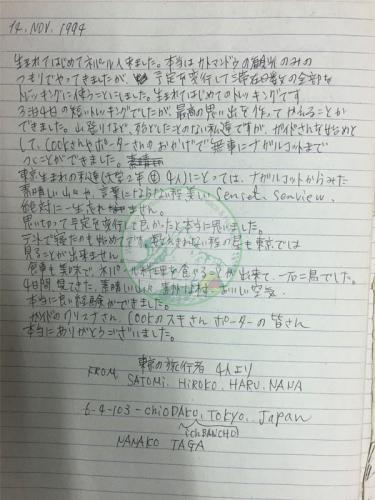 14. NOV. 1994
生まれてはじめてネパールへ来ました。本当はカトマンドゥの観光のみの
つもりでやってきましたが、予定を変行して滞在日数の全部を
トレッキングに使うことにしました。生まれてはじめてのトレッキングです
3泊4日の短いトレッキングでしたが、最高の思い出を作って
できました。山登りはほとんどしたことのない私達ですが、ガイドさんをはじめと
して、COOKさんやポーターさんのおかげで無事にナガルコットまで
つくことができました。
東京生まれの私達(女型 4人)にとっては、ナガルコットからみた
素晴しい山々や、言葉にならない程美しい Sunset, Sunview,
絶対に一生忘れません。
思い切って予定を変行して良かったと本当に思いました。
テントで寝たのも初めてです。数えきれない程の星も東京では
見ることが出来ません
食事も美味で、ネパール料理を食べることが出来て、一石二鳥でした。
4日間見てきた、素晴しい山々、静かな村、おいしい空気、
本当に良い経験ができました。
ガイドのクリスナさん, COOKのスキさん ポーターの皆さん
本当にありがとうございました。
東京の旅行者 4人より
FROM, SATOMI, HIROKO, HARU, NANA
6-4-103-chioDAKU, TOKYO, Japan
ichBANCHO
NANAKO TAGA